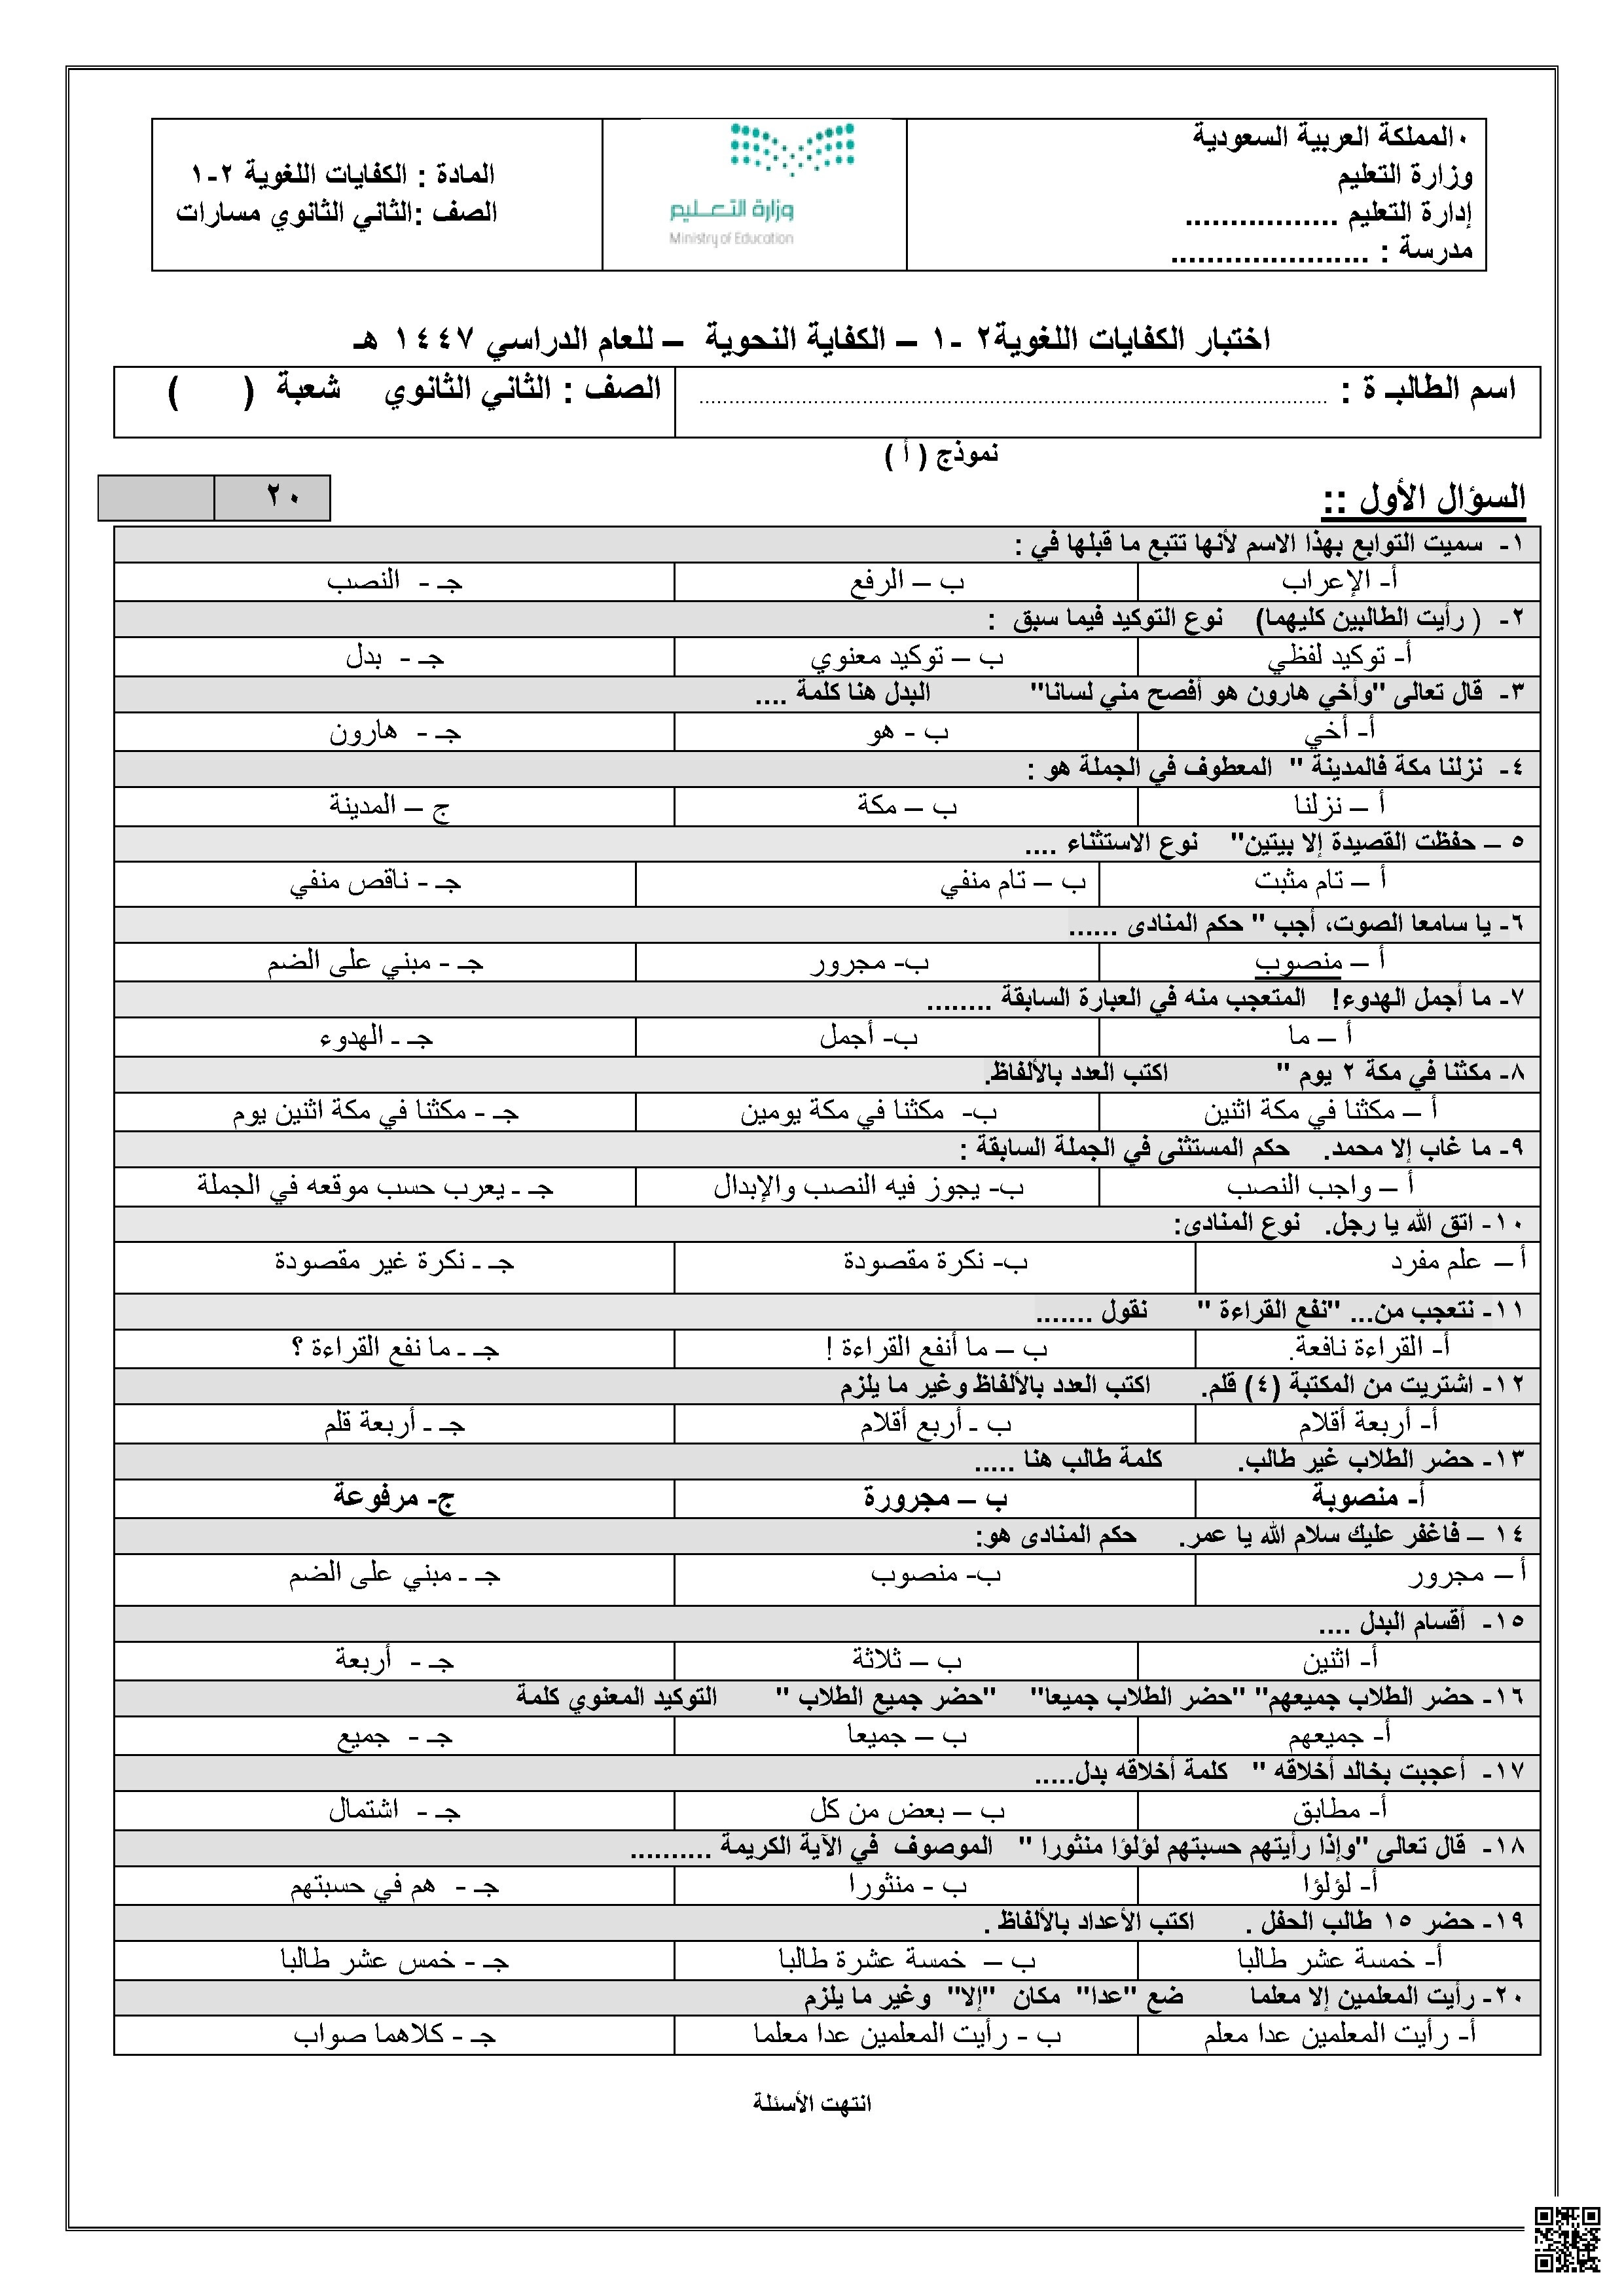 ٠المملكة العربية السعودية
وزارة التعليم
إدارة التعليم .................
مدرسة : ......................
وزارة التعليم
Ministry of Education
المادة : الكفايات اللغوية ٢-١
الصف :الثاني الثانوي مسارات
اختبار الكفايات اللغوية٢ -١ – الكفاية النحوية – للعام الدراسي ١٤٤٧ هـ
اسم الطالبـ ة : ................................................................................
الصف : الثاني الثانوي شعبة ( )
نموذج ( أ )
السؤال الأول ::
٢٠
١- سميت التوابع بهذا الاسم لأنها تتبع ما قبلها في :
أ- الإعراب ب – الرفع جـ - النصب
٢- ( رأيت الطالبين كليهما) نوع التوكيد فيما سبق :
أ- توكيد لفظي ب – توكيد معنوي جـ - بدل
٣- قال تعالى "وأخي هارون هو أفصح مني لسانا" البدل هنا كلمة ....
أ- أخي ب - هو جـ - هارون
٤- نزلنا مكة فالمدينة " المعطوف في الجملة هو :
أ – نزلنا ب – مكة ج – المدينة
٥ – حفظت القصيدة إلا بيتين" نوع الاستثناء ....
أ – تام مثبت ب – تام منفي جـ - ناقص منفي
٦- يا سامعا الصوت، أجب " حكم المنادى ......
أ – منصوب ب- مجرور جـ - مبني على الضم
٧- ما أجمل الهدوء! المتعجب منه في العبارة السابقة ........
أ – ما ب- أجمل جـ ـ الهدوء
٨- مكثنا في مكة ٢ يوم " اكتب العدد بالألفاظ.
أ – مكثنا في مكة اثنين ب- مكثنا في مكة يومين جـ - مكثنا في مكة اثنين يوم
٩- ما غاب إلا محمد. حكم المستثنى في الجملة السابقة :
أ – واجب النصب ب- يجوز فيه النصب والإبدال جـ ـ يعرب حسب موقعه في الجملة
١٠- اتق الله يا رجل. نوع المنادى:
أ – علم مفرد ب- نكرة مقصودة جـ ـ نكرة غير مقصودة
١١- نتعجب من... "نفع القراءة " نقول .......
أ- القراءة نافعة. ب – ما أنفع القراءة ! جـ ـ ما نفع القراءة ؟
١٢- اشتريت من المكتبة (٤) قلم. اكتب العدد بالألفاظ وغير ما يلزم
أ- أربعة أقلام ب ـ أربع أقلام جـ ـ أربعة قلم
١٣- حضر الطلاب غير طالب. كلمة طالب هنا .....
أ- منصوبة ب – مجرورة ج- مرفوعة
١٤ – فاغفر عليك سلام الله يا عمر. حكم المنادى هو:
أ – مجرور ب- منصوب جـ ـ مبني على الضم
١٥- أقسام البدل ....
أ- اثنين ب – ثلاثة جـ - أربعة
١٦- حضر الطلاب جميعهم" "حضر الطلاب جميعا" "حضر جميع الطلاب " التوكيد المعنوي كلمة
أ- جميعهم ب – جميعا جـ - جميع
١٧- أعجبت بخالد أخلاقه " كلمة أخلاقه بدل.....
أ- مطابق ب – بعض من كل جـ - اشتمال
١٨- قال تعالى "وإذا رأيتهم حسبتهم لؤلؤا منثورا " الموصوف في الآية الكريمة ..........
أ- لؤلؤا ب - منثورا جـ - هم في حسبتهم
١٩- حضر ١٥ طالب الحفل . اكتب الأعداد بالألفاظ .
أ- خمسة عشر طالبا ب – خمسة عشرة طالبا جـ - خمس عشر طالبا
٢٠- رأيت المعلمين إلا معلما ضع "عدا" مكان "إلا" وغير ما يلزم
أ- رأيت المعلمين عدا معلم ب - رأيت المعلمين عدا معلما جـ - كلاهما صواب
انتهت الأسئلة